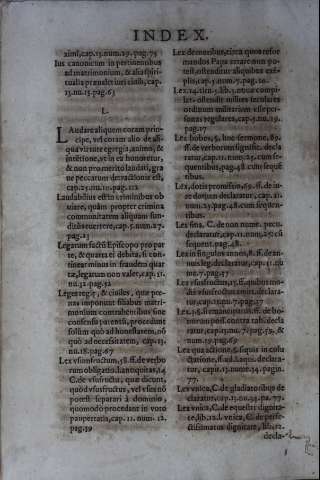 INDEX.
zimi, cap. 13. num. 29. pag. 75
Ius canonicum in pertinentibus
ad matrimonium, & alia spiri-
tualia præualet iuri ciuili, cap.
13. nu. 15. pag. 63
L.
LAudare aliquem coram prin-
cipe, vel coram alio de ali-
qua virtute egregia, animo, &
intētione, vt in ea honoretur,
& non pro merito laudati, gra
te peccarum detractionis est,
cap. 25. nu. 10. pag. 112
Laudabilius est in criminibus ob
uiare, quàm propter crimina
communitatem aliquam fun-
ditus euertere, cap. 5. num. 27.
pag. 23
Legatum factū Episcopo pro par
te, & quarta ei debita, si con-
tineat minus in fraudem quar
tæ, legatum non valet, cap. 11.
nu. 32. pag. 52
Leges regiæ, & ciuiles, quæ pœ-
nas imponunt filiabus matri-
monium contrahentibus sine
consensu parentis, procedunt
solùm quò ad honestatem, nō
quò ad necessitatem, cap. 13.
nu. 18. pag. 67
Lex vsumfructum, 58. ff. de verbo
rum obligatio. l. antiquitas, 14
C. de vsufructu, quæ dicunt,
quòd vsusfructus, vel vsus nō
potest separari à dominio,
quomodo procedant in voto
paupertatis, cap. 11. num. 12.
pag. 39
Lex de moribus, circa quos refor
mandos Papa errare non po-
test, ostenditur aliquibus exē-
plis, cap. 5. num. 17. pag.
Lex 14. titu. 5. lib. 3. nouæ compi-
lat. ostendit milites seculares
ordinum militarium esse per-
sonas regulares, cap. 4. nu. 19.
pag. 17
Lex boues, §. hoc sermone, 89.
ff. de verborum signific. decla
ratur, cap. 11. num. 25. cum se-
quentibus, pag. 48. cum seque
tibus.
Lex, dotis promissio, 69. ff. de iu-
re dotium declaratur, cap. 11.
num. 25. pag. 48. cum sequen-
tibus.
Lex fina. C. de non nume. pecu.
declaratur, cap. 11. num. 25. cū
sequent. pag. 48.
Lex in singulos annos, 8. ff. de an-
nuis leg. declaratur, cap. 11. nu
me. 7. pag. 37
Lex vsusfructus, 15. ff. quibus mo-
dis vsusfructus amit. declara-
tur, cap. 11. num. 7. pag. 37
Lex 1. §. si emancipatus. ff. de bo-
norum poss. contra tab. decla
ratur, cap. 11. nu. 7. pag. 39, &
nu. 10. pag. 69
Lex qua actione, §. si quis in colu
ctatione, ff. ad l. aqui. declara-
tur, cap. 14. num. 120. pagin.
77.
Lex vnica, C. de gladiatoribus de
claratur, cap. 13. nu. 34. pa. 77.
Lex vnica, C. de equestri dignita
te, lib. 12. l. vnica, C. de perfe-
ctissimatus dignitate, lib. 12.
decla-